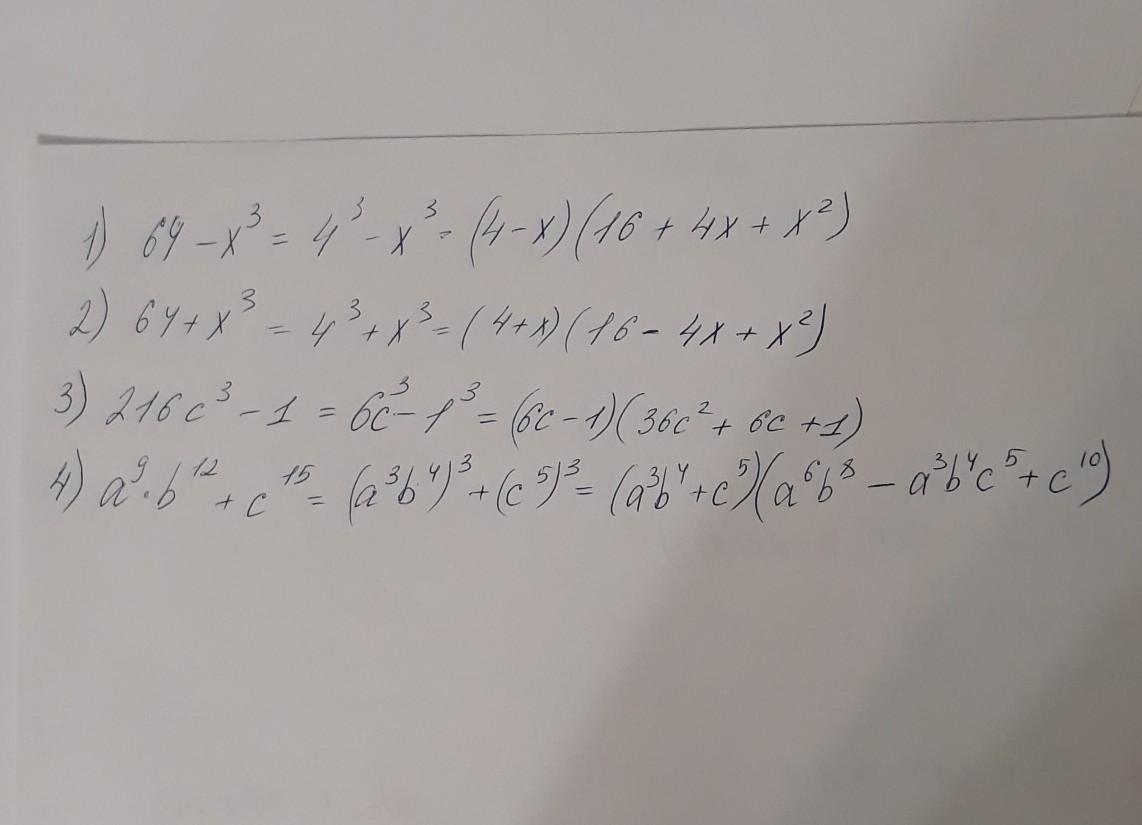 1) 64 - x³ = 4³ - x³ = (4-x)(16 + 4x + x²)
2) 64 + x³ = 4³ + x³ = (4+x)(16 - 4x + x²)
3) 216c³ - 1 = 6c³ - 1³ = (6c - 1)(36c² + 6c + 1)
4) a⁹·b¹² + c¹⁵ = (a³b⁴)³ + (c⁵)³ = (a³b⁴ + c⁵)(a⁶b⁸ - a³b⁴c⁵ + c¹⁰)